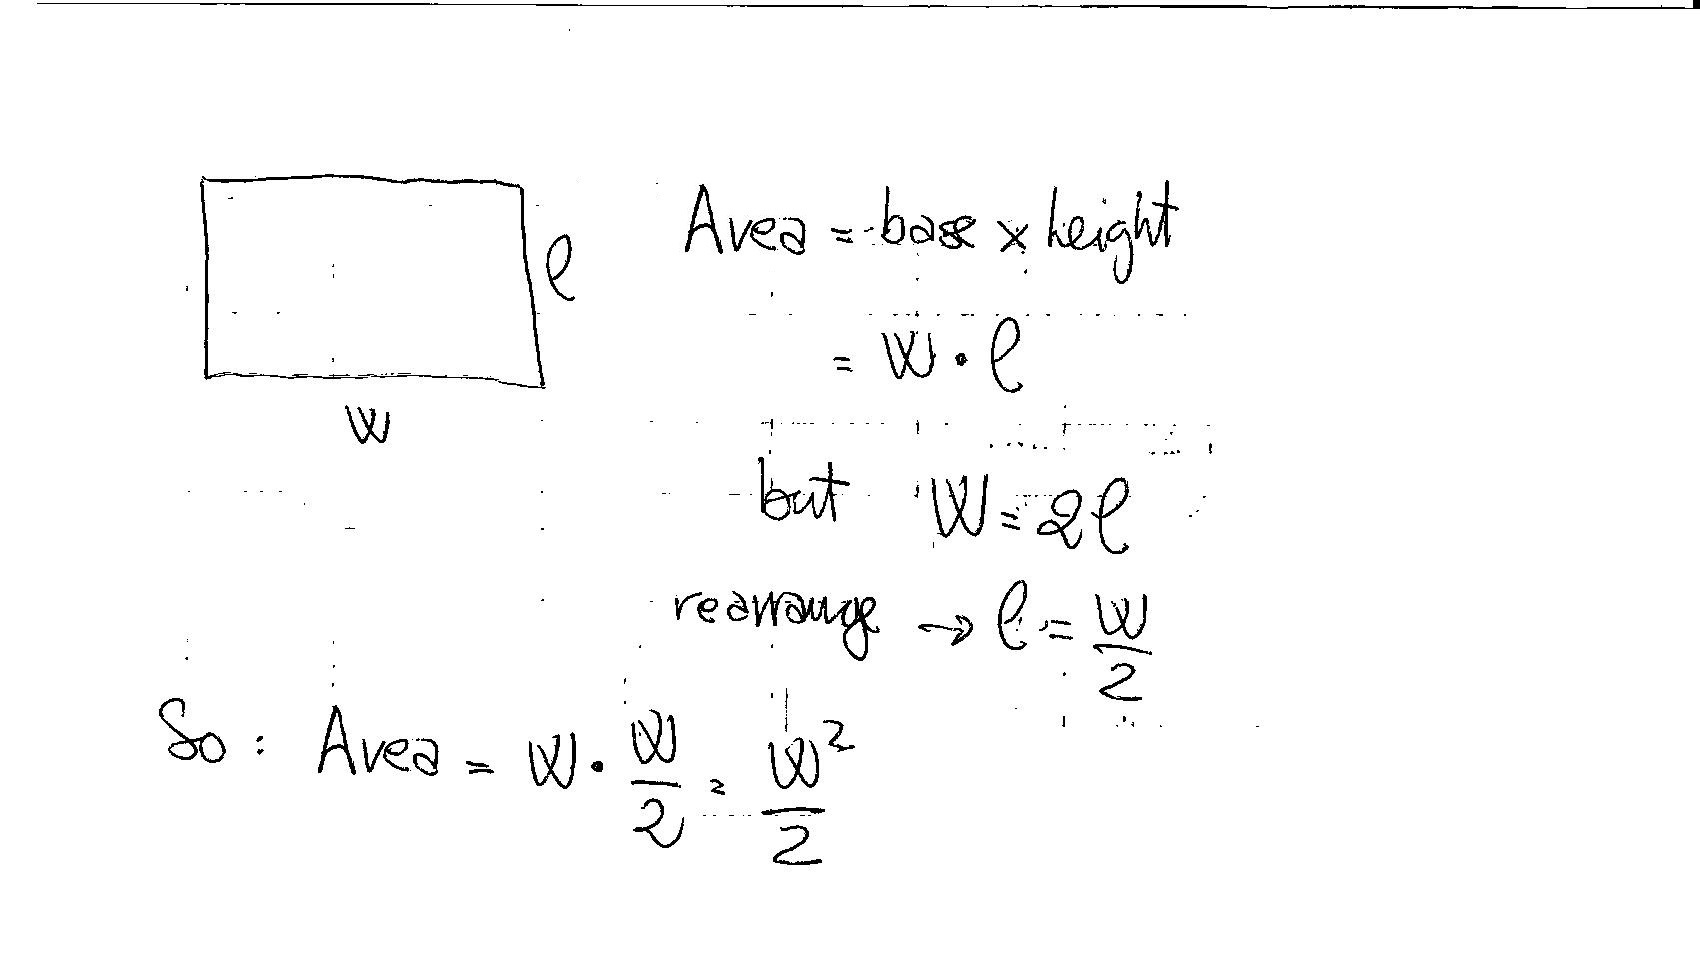 Area = base × height
ℓ
= W · ℓ
W
but W = 2ℓ
rearrange → ℓ = W/2
So : Area = W · W/2 = W²/2